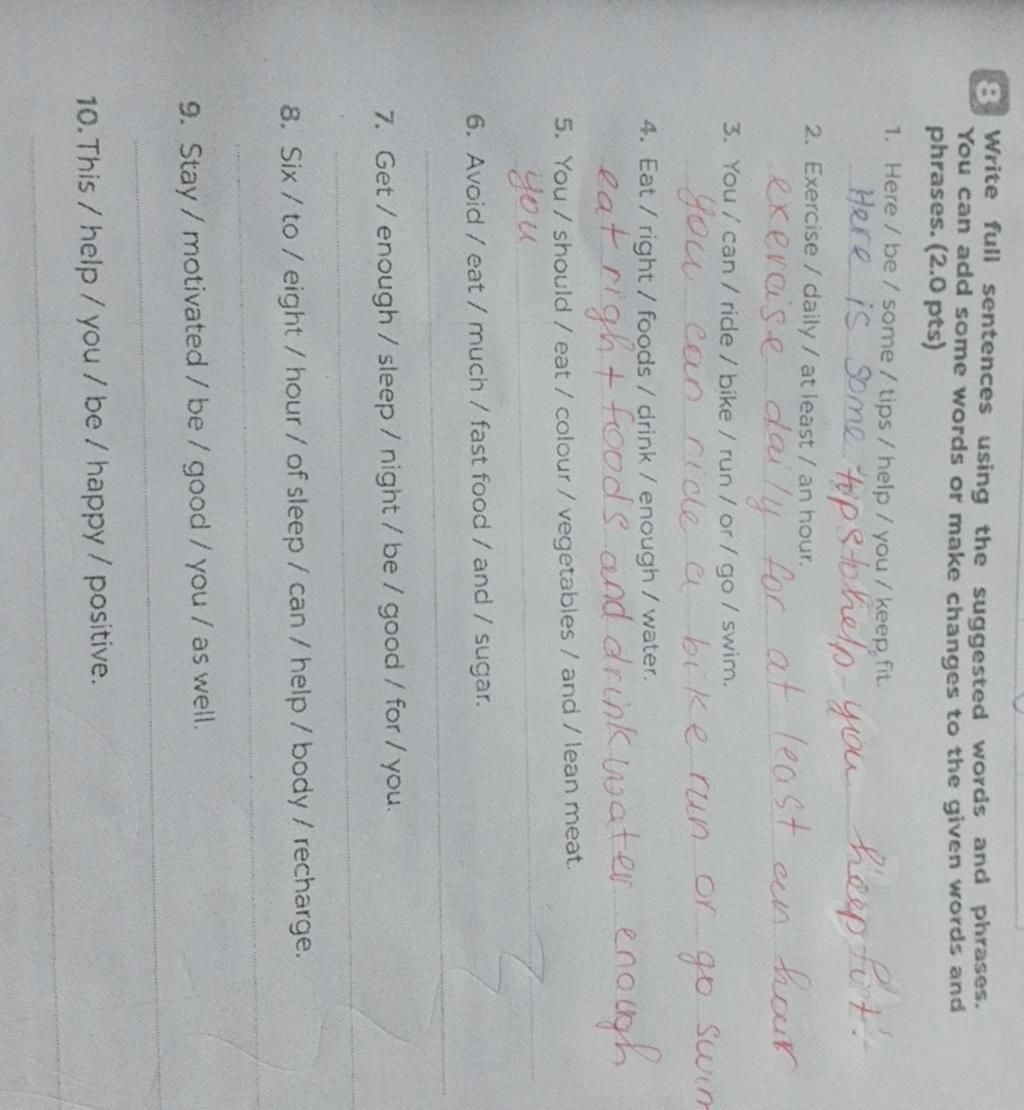 8 Write full sentences using the suggested words and phrases.
You can add some words or make changes to the given words and
phrases. (2.0 pts)
1. Here / be / some / tips / help / you / keep fit.
Here is some tips to help you keep fit.
2. Exercise / daily / at least / an hour.
exercise daily for at least an hour
3. You / can / ride / bike / run / or / go / swim.
you can ride a bike run or go swim
4. Eat / right / foods / drink / enough / water.
eat right foods and drink water enough
5. You / should / eat / colour / vegetables / and / lean meat.
you
6. Avoid / eat / much / fast food / and / sugar.
7. Get / enough / sleep / night / be / good / for / you.
8. Six / to / eight / hour / of sleep / can / help / body / recharge.
9. Stay / motivated / be / good / you / as well.
10. This / help / you / be / happy / positive.